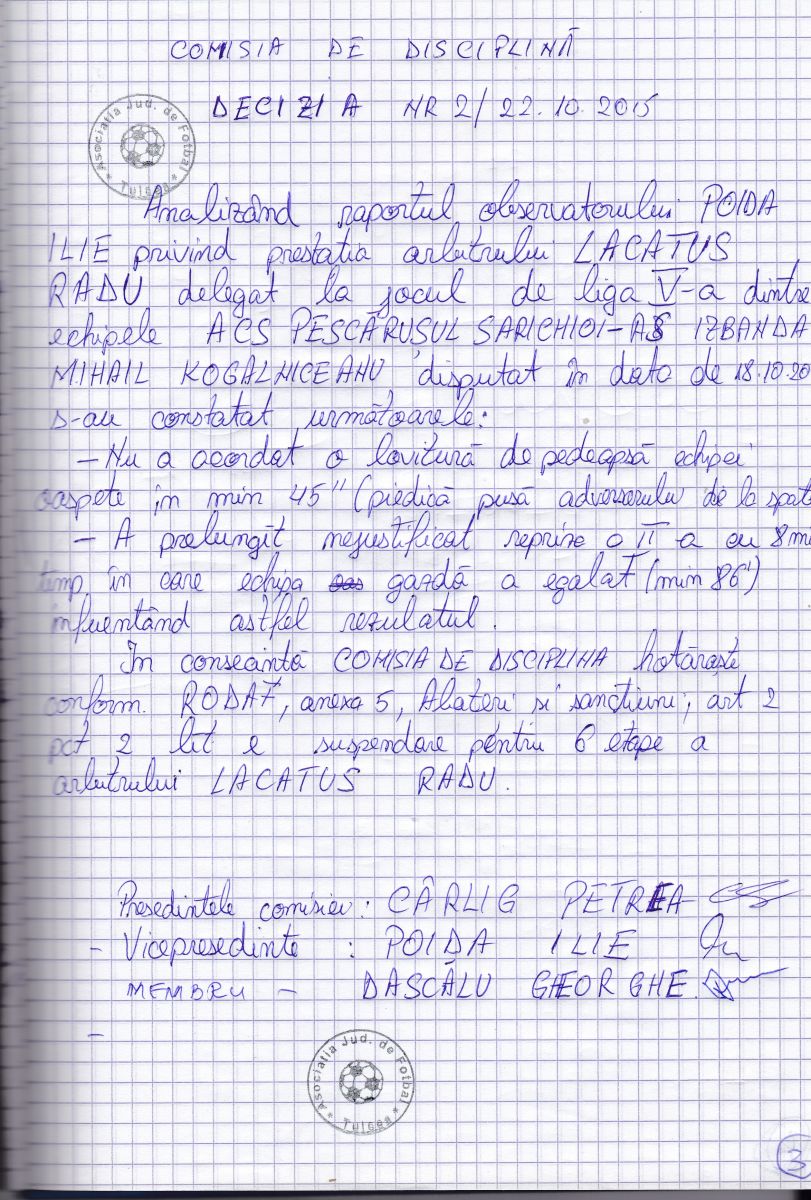 COMISIA DE DISCIPLINĂ
DECIZIA NR 2/22.10.2015
Asociatia Jud. de Fotbal
* Tulcea *
Analizând raportul observatorului POIDA
ILIE privind prestatia arbitrului LACATUS
RADU delegat la jocul de liga V-a dintre
echipele ACS PESCĂRUSUL SARICHIOI-AS IZBANDA
MIHAIL KOGALNICEANU disputat în data de 18.10.20
s-au constatat următoarele:
- Nu a acordat o lovitură de pedeapsă echipei
oaspete în min 45" (piedică pusă adversarului de la spate
- A prelungit nejustificat reprize a II-a cu 8 mi
timp în care echipa oas gazdă a egalat (min 86')
infuentând astfel rezulatul.
In conseantă COMISIA DE DISCIPLINA hotărăste
conform. RODAF, anexa 5, Abateri si sanctiuni, art 2
pct 2 lit e suspendare pentru 6 etape a
arbitrului LACATUS RADU.
Presedintele comisiei: CÂRLIG PETREA
- Vicepresedinte : POIDA ILIE
MEMBRU - DASCĂLU GHEORGHE.
-
Asociatia Jud. de Fotbal
* Tulcea *
3